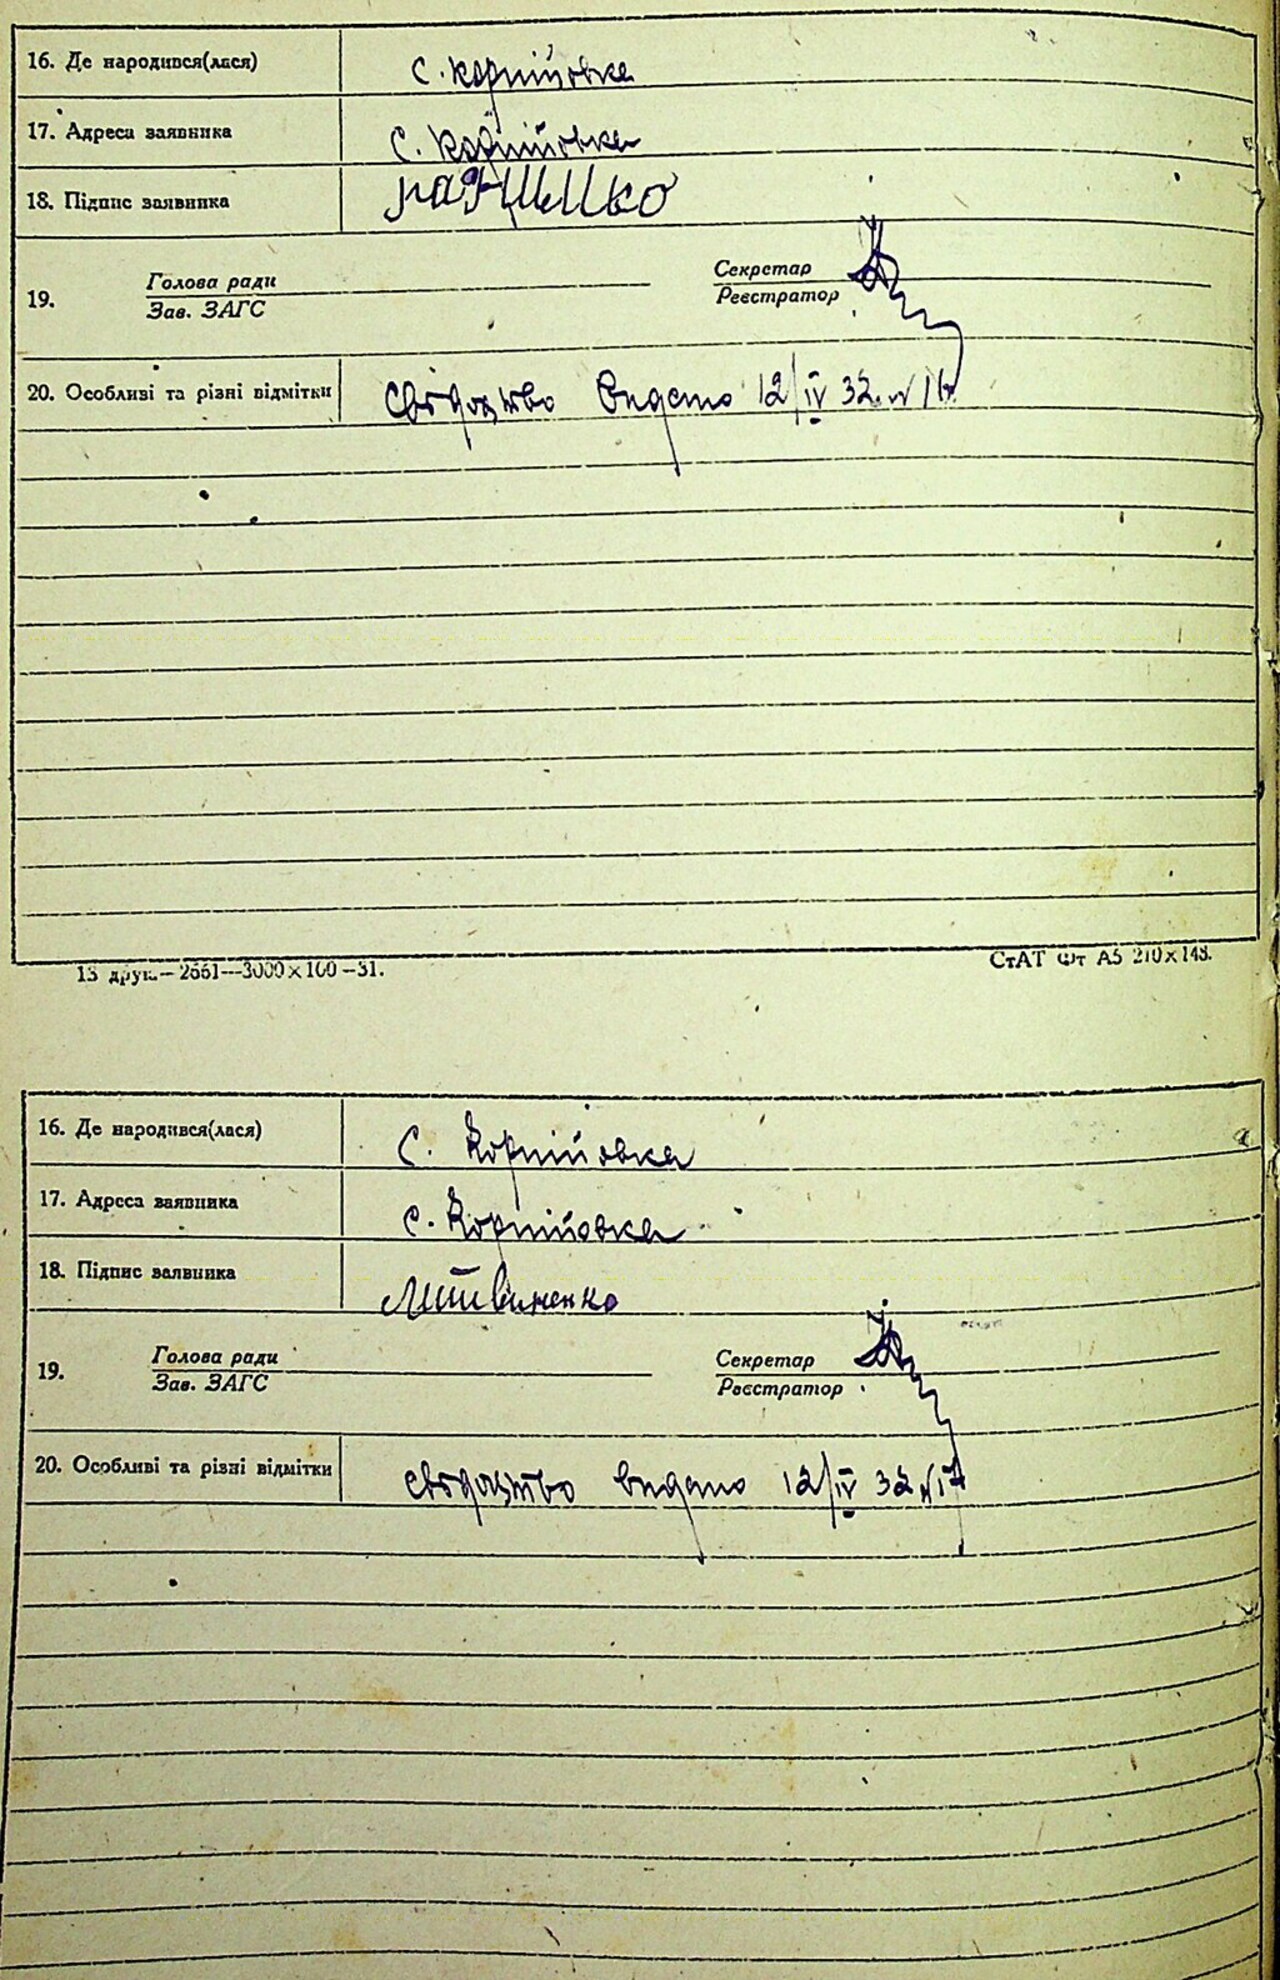 16. Де народився(лася) с. корнійовка
17. Адреса заявника с. Корнійовка
18. Підпис заявника
19. Голова ради Секретар
Зав. ЗАГС Реєстратор
20. Особливі та різні відмітки свідоцтво видано 12/IV 32 №16
13 друк.—2661—3000×100—31. СтАТ Фт А5 210×148.
16. Де народився(лася) с. Корнійовка
17. Адреса заявника с. Корнійовка
18. Підпис заявника Литвиненко
19. Голова ради Секретар
Зав. ЗАГС Реєстратор
20. Особливі та різні відмітки свідоцтво видано 12/IV 32 №17